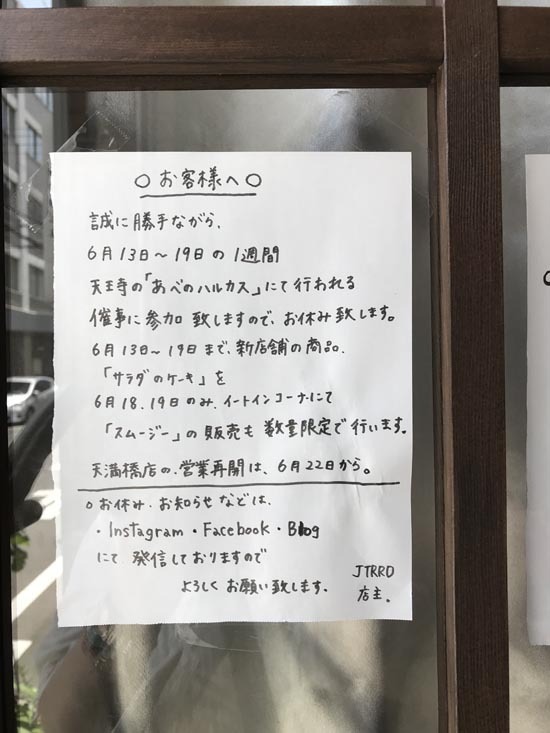 ○ お客様へ ○
誠に勝手ながら、
6月13日～19日の1週間
天王寺の「あべのハルカス」にて行われる
催事に参加致しますので、お休み致します。
6月13日～19日まで、新店舗の商品、
「サラダのケーキ」を
6月18、19日のみ、イートインコーナーにて
「スムージー」の販売も数量限定で行います。
天満橋店の、営業再開は、6月22日から。
○お休み、お知らせなどは、
・Instagram・Facebook・Blog
にて発信しておりますので
よろしくお願い致します。
JTRRD
店主、